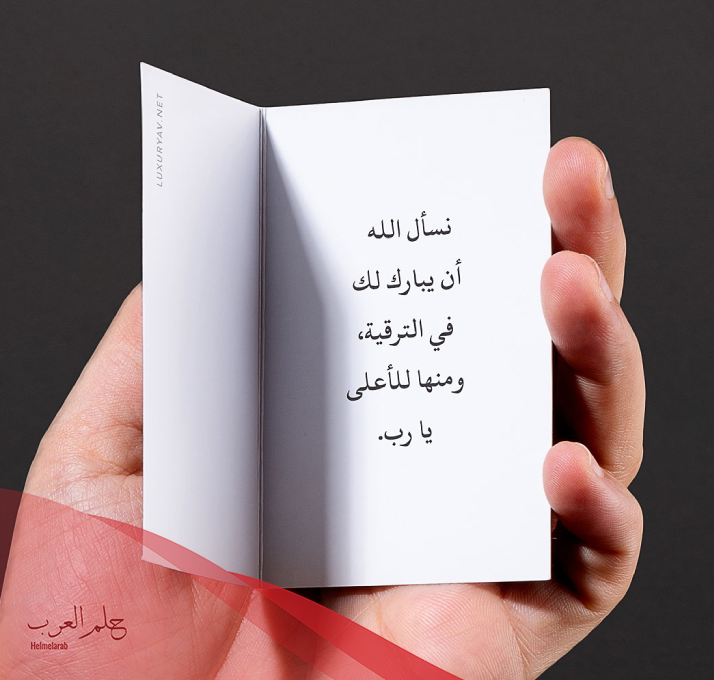 LUXURYAV.NET
نسأل الله
أن يبارك لك
في الترقية،
ومنها للأعلى
يا رب.
حلم العرب
Helmelarab